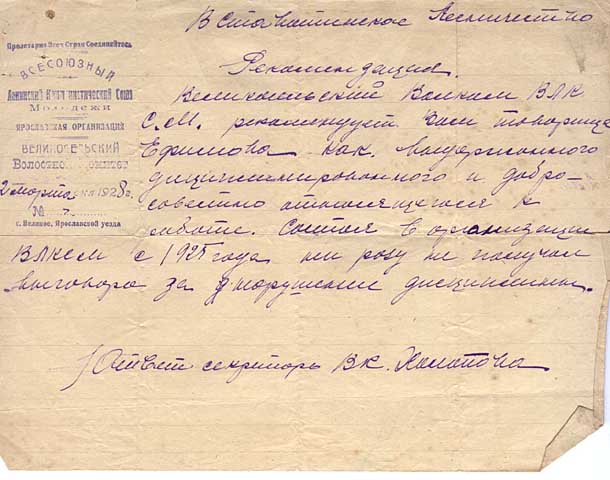 В Лесничество
Рекомендация.
Пролетарии Всех Стран Соединяйтесь
ВСЕСОЮЗНЫЙ
Ленинский Коммунистический Союз
Молодежи
ЯРОСЛАВСКАЯ ОРГАНИЗАЦИЯ
ВЕЛИКОСЕЛЬСКИЙ
Волостной Комитет
2 марта 1928 г.
№
с. Великое, Ярославской уезда
Великосельский Волком ВЛК
С.М. рекомендует Вам товарища
Ефимова как выдержанного
дисциплинированного и добро-
совестно относящегося к
работе. Состоя в организации
ВЛКСМ с 1925 года ни разу не получал
выговора за нарушения дисциплины.
Ответ секретарь ВК. Халатова